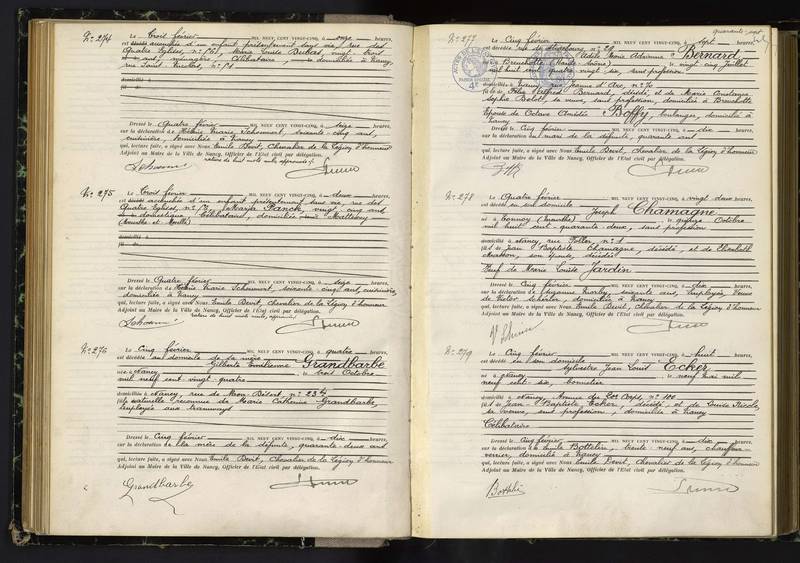 N° 274 Le Trois février MIL NEUF CENT VINGT-CINQ, à onze heures,
est accouchée d'un enfant présentement sans vie, rue des
Quatre Eglises, n° Marie Louise Dubas, vingt trois
ans, ménagère, Célibataire, domiciliée à Nancy,
rue Saint Nicolas, n°
domicilié à
fil de
Dressé le Quatre février MIL NEUF CENT VINGT-CINQ, à seize heures,
sur la déclaration de Marie soixante-cinq ans,
domiciliée à Nancy
qui, lecture faite, a signé avec Nous Emile Devit, Chevalier de la Légion d'honneur
Adjoint au Maire de la Ville de Nancy, Officier de l'Etat civil par délégation.
N° 275 Le Trois février MIL NEUF CENT VINGT-CINQ, à deux heures,
est accouchée d'un enfant présentement sans vie, rue des
Quatre Eglises, n° Maria Janck, vingt cinq ans
domestique Célibataire, domiciliée
(Meurthe et Moselle)
domicilié à
fil de
Dressé le Quatre février MIL NEUF CENT VINGT-CINQ, à seize heures,
sur la déclaration de Marie soixante-cinq ans,
domiciliée à Nancy
qui, lecture faite, a signé avec Nous Emile Devit, Chevalier de la Légion d'honneur
Adjoint au Maire de la Ville de Nancy, Officier de l'Etat civil par délégation.
N° 276 Le Cinq février MIL NEUF CENT VINGT-CINQ, à quatre heures,
est décédée au domicile de sa mère
Gilberte Emilienne Grandbarbe
née à Nancy le trois Octobre
mil neuf cent vingt quatre
domiciliée à Nancy, rue de Mon-Désert, n° 23
fille naturelle reconnue de Marie Catherine Grandbarbe,
employée aux tramways
Dressé le Cinq février MIL NEUF CENT VINGT-CINQ, à dix heures,
sur la déclaration de la mère de la défunte, quarante-deux ans
qui, lecture faite, a signé avec Nous Emile Devit, Chevalier de la Légion d'honneur
Adjoint au Maire de la Ville de Nancy, Officier de l'Etat civil par délégation.
Grandbarbe
quarante-sept
N° 277 Le Cinq février MIL NEUF CENT VINGT-CINQ, à sept heures,
est décédée rue de Strasbourg n°
Adèle Marie Adrienne Bernard
née à Breuchotte (Haute-Saône) le vingt cinq Juillet
mil huit cent quatre vingt six, sans profession
domiciliée à Nancy, rue Jeanne d'Arc, n°
fille de Alfred Bernard, décédé, et de Marie Constance
Sophie sa veuve, sans profession, domiciliée à Breuchotte
Epouse de Octave Amédée Boffy, boulanger, domicilié à
Nancy
Dressé le Cinq février MIL NEUF CENT VINGT-CINQ, à dix heures,
sur la déclaration de mari de la défunte, quarante ans
qui, lecture faite, a signé avec Nous Emile Devit, Chevalier de la Légion d'honneur
Adjoint au Maire de la Ville de Nancy, Officier de l'Etat civil par délégation.
N° 278 Le Quatre février MIL NEUF CENT VINGT-CINQ, à vingt deux heures,
est décédé en son domicile
Joseph Chamagne
né à Tonnoy (Meurthe) le quinze Octobre
mil huit cent quarante-deux, sans profession
domicilié à Nancy rue n° 1
fils de Jean Baptiste Chamagne, décédé, et de Elisabeth
son épouse, décédée
Veuf de Marie Louise Jardin
Dressé le Cinq février MIL NEUF CENT VINGT-CINQ, à dix heures,
sur la déclaration de Suzanne soixante ans, employée, Veuve
de Victor domiciliée à Nancy
qui, lecture faite, a signé avec Nous Emile Devit, Chevalier de la Légion d'honneur
Adjoint au Maire de la Ville de Nancy, Officier de l'Etat civil par délégation.
N° 279 Le Cinq février MIL NEUF CENT VINGT-CINQ, à huit heures,
est décédé en son domicile
Sylvestre Jean Louis Ecker
né à Nancy le neuf Mai mil
neuf cent six,
domicilié à Nancy, Avenue du 20e Corps, n° 100
fils de Jean-Baptiste Ecker, décédé et de Louise Nicole,
sa Veuve, sans profession, domiciliée à Nancy
Célibataire
Dressé le Cinq février MIL NEUF CENT VINGT-CINQ, à dix heures,
sur la déclaration de Emile trente-neuf ans,
domicilié à Nancy
qui, lecture faite, a signé avec Nous Emile Devit, Chevalier de la Légion d'honneur
Adjoint au Maire de la Ville de Nancy, Officier de l'Etat civil par délégation.